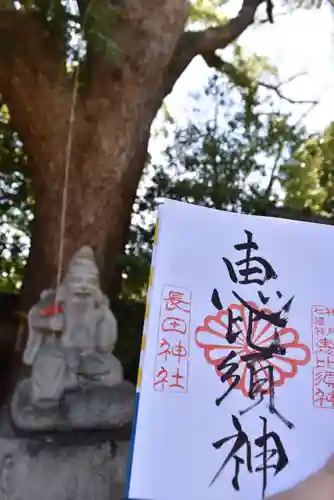 恵比須神
恵比須神
長田神社